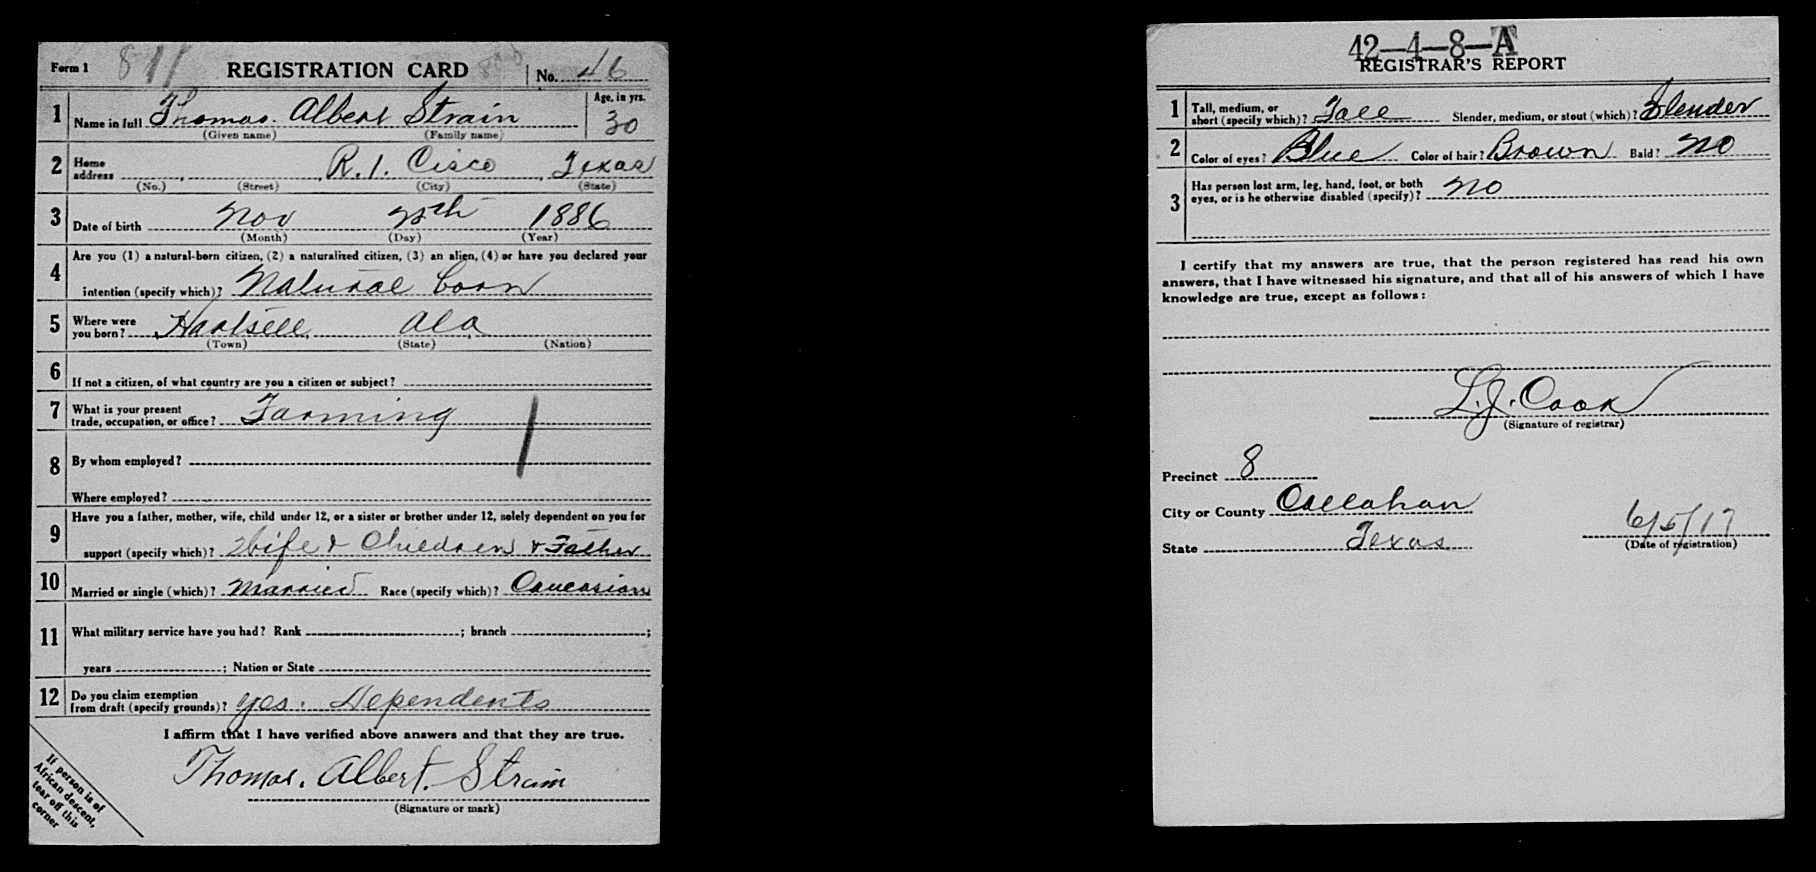 Form 1 811 REGISTRATION CARD No. 46
1 Name in full Thomas. Albert Strain Age, in yrs. 30
(Given name) (Family name)
2 Home address R. 1. Cisco Texas
(No.) (Street) (City) (State)
3 Date of birth Nov 1886
(Month) (Day) (Year)
4 Are you (1) a natural-born citizen, (2) a naturalized citizen, (3) an alien, (4) or have you declared your
intention (specify which)? Natural born
5 Where were you born? Hartsell Ala
(Town) (State) (Nation)
6 If not a citizen, of what country are you a citizen or subject?
7 What is your present trade, occupation, or office? Farming
8 By whom employed?
Where employed?
9 Have you a father, mother, wife, child under 12, or a sister or brother under 12, solely dependent on you for
support (specify which)? Wife & Children & Father
10 Married or single (which)? Married Race (specify which)? Caucasian
11 What military service have you had? Rank ; branch ;
years ; Nation or State
12 Do you claim exemption from draft (specify grounds)? yes. Dependents
I affirm that I have verified above answers and that they are true.
Thomas. Albert. Strain
(Signature or mark)
If person is of
African descent,
tear off this
corner
42-4-8-A
REGISTRAR'S REPORT
1 Tall, medium, or short (specify which)? Tall Slender, medium, or stout (which)? Slender
2 Color of eyes? Blue Color of hair? Brown Bald? No
3 Has person lost arm, leg, hand, foot, or both eyes, or is he otherwise disabled (specify)? No
I certify that my answers are true, that the person registered has read his own
answers, that I have witnessed his signature, and that all of his answers of which I have
knowledge are true, except as follows:
L. J. Cook
(Signature of registrar)
Precinct 8
City or County Callahan
State Texas 6/5/17
(Date of registration)